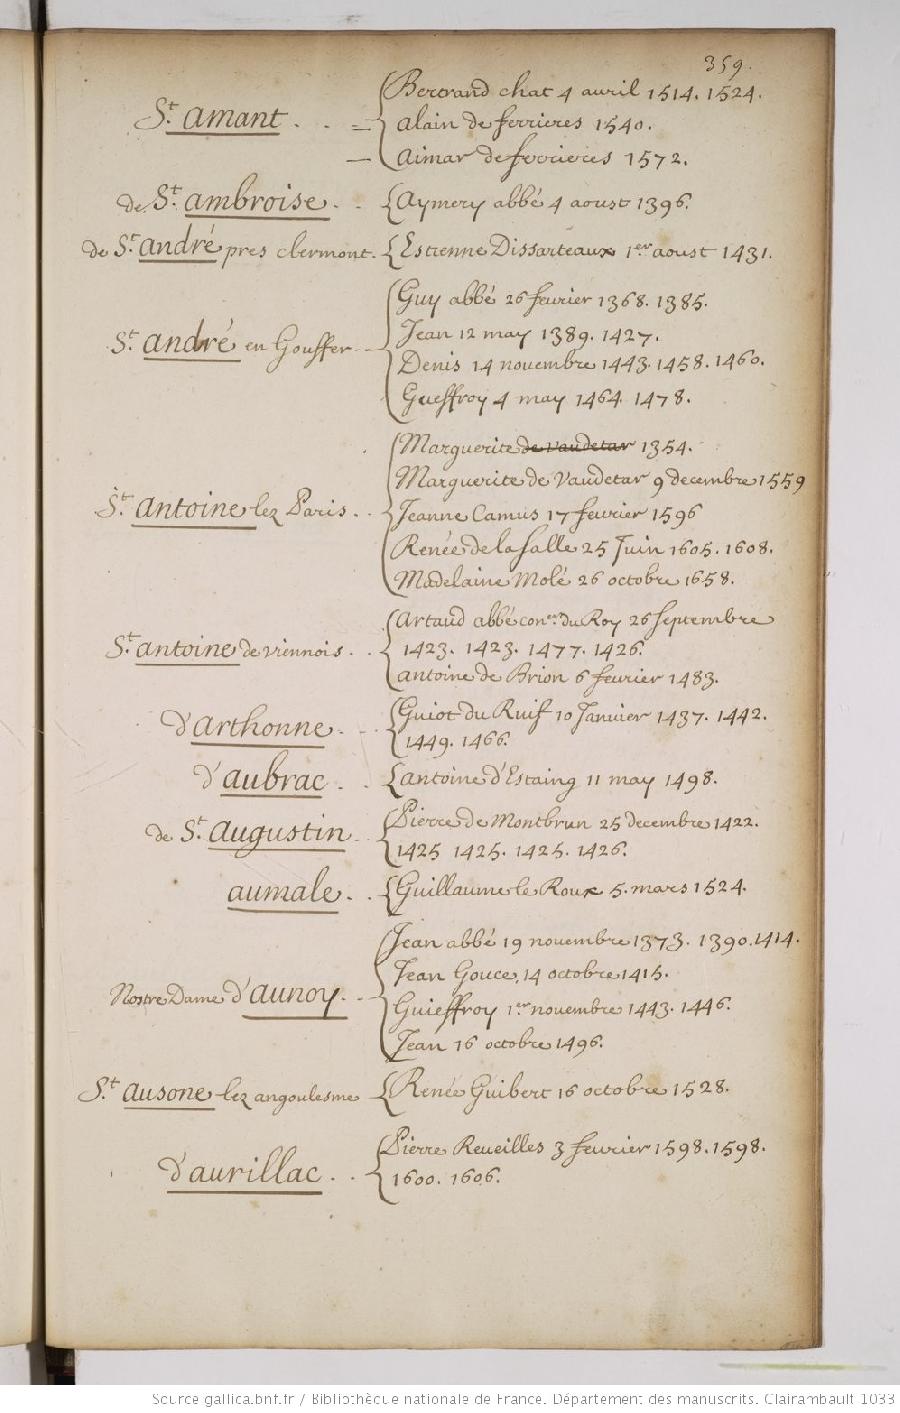 359.
St. Amant . . = Bertrand chat 4 avril 1514. 1524.
Alain de ferrieres 1540.
— Aimar de ferrieres 1572.
de St. Ambroise . . Aymery abbé 4 aoust 1396.
de St. André pres clermont. Estienne Dissarteaux 1er aoust 1431.
St. André en Gouffer Guy abbé 26 fevrier 1368. 1385.
Jean 12 may 1389. 1427.
Denis 14 novembre 1443. 1458. 1460.
Gueffroy 4 may 1464. 1478.
St. Antoine lez Paris . . Marguerite de Vaudetar 1354.
Marguerite de Vaudetar 9 decembre 1559
Jeanne Camus 17 fevrier 1596
Renée de la Salle 25 Juin 1605. 1608.
Madelaine Molé 26 octobre 1658.
St. Antoine de viennois . . Artaud abbé coner. du Roy 26 septembre
1423. 1423. 1477. 1426.
Antoine de Brion 6 fevrier 1483.
d'Arthonne . . Guiot du Ruif 10 Janvier 1437. 1442.
1449. 1466.
d'Aubrac . . Antoine d'Estaing 11 may 1498.
de St. Augustin . . Pierre de Montbrun 25 decembre 1422.
1425 1425. 1425. 1426.
Aumale . . Guillaume le Roux 5. mars 1524.
Nostre Dame d'Aunoy . . Jean abbé 19 novembre 1373. 1390. 1414.
Jean Gouce, 14 octobre 1415.
Guieffroy 1er novembre 1443. 1446.
Jean 16 octobre 1496.
St. Ausone lez angoulesme Renée Guibert 16 octobre 1528.
d'Aurillac . . Pierre Reveilles 3 fevrier 1598. 1598.
1600. 1606.
Source gallica.bnf.fr / Bibliothèque nationale de France. Département des manuscrits. Clairambault 1033